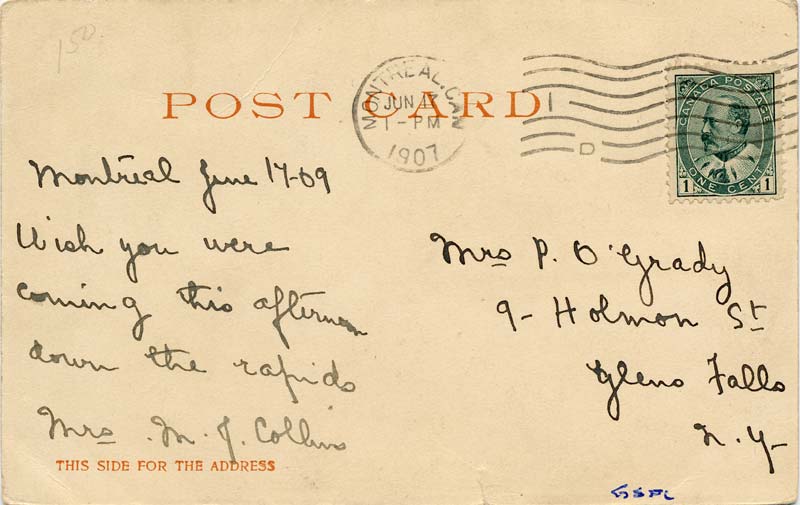 150
POST CARD
MONTREAL, CAN
JUN 17
1 - PM
1907
1
D
CANADA POSTAGE
1 ONE CENT 1
Montreal June 17-09
Wish you were
coming this afternoon
down the rapids
Mrs. M. J. Collins
THIS SIDE FOR THE ADDRESS
Mrs P. O'Grady
9- Holmon St
Glens Falls
N.Y-